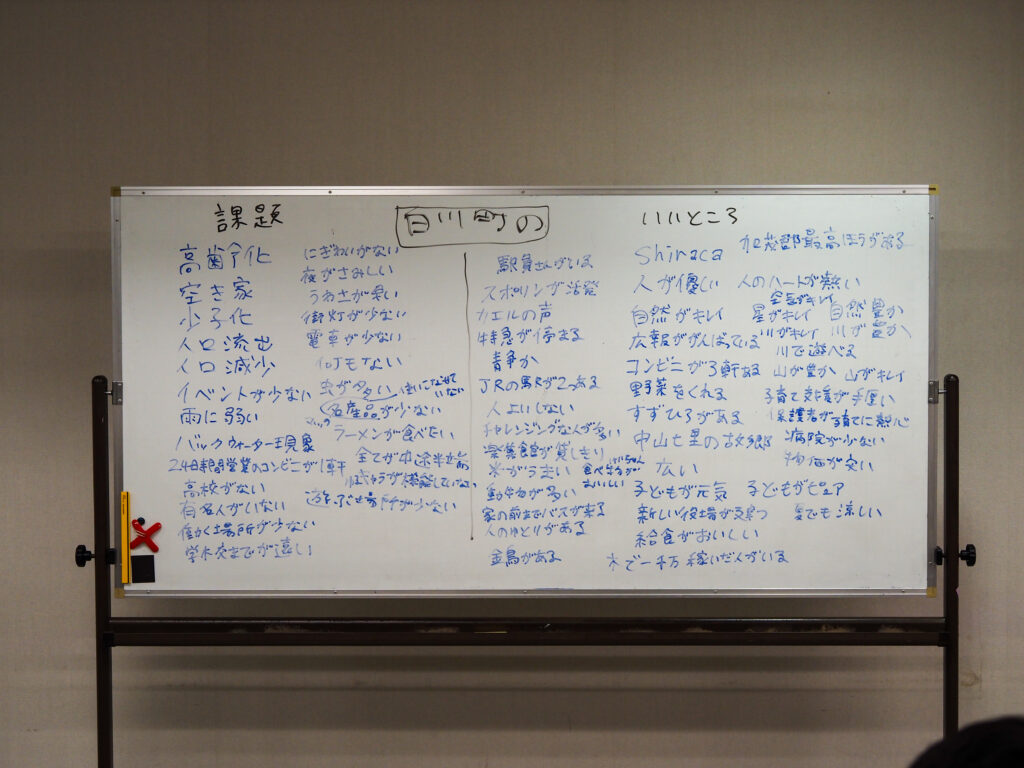 白川町の
課題
高齢化
空き家
少子化
人口流出
人口減少
イベントが少ない
雨に弱い
バックウォーター現象
24時間営業のコンビニが1軒
高校がない
有名人がいない
働く場所が少ない
学校までが遠い
にぎわいがない
夜がさみしい
うわさが早い
街灯が少ない
電車が少ない
何もない
虫が多い
名産品が少ない
マック
ラーメンが食べたい
全てが中途半端
遊ぶ場所が少ない
いいところ
駅員さんがいる
スポリンが活発
カエルの声
特急が停まる
静か
JRの駅が2つある
人よいしない
チャレンジングな人が多い
楽集館が貸しきり
米がうまい
けいちゃん
おいしい
動物が多い
家の前までバスが来る
人のゆとりがある
金鳥がある
Shiraca
人が優しい
自然がキレイ
広報ががんばっている
コンビニが3軒ある
野菜をくれる
すずひろがある
中山七里の故郷
広い
子どもが元気
新しい役場が建つ
給食がおいしい
木で一千万稼いだ人がいる
加茂郡最高ほうがある
人のハートが熱い
空気がキレイ
星がキレイ
自然豊か
川がキレイ
川が豊か
川で遊べる
山が豊か
山がキレイ
子育て支援が手厚い
保護者が子育てに熱心
病院が少ない
物価が安い
子どもがピュア
夏でも涼しい